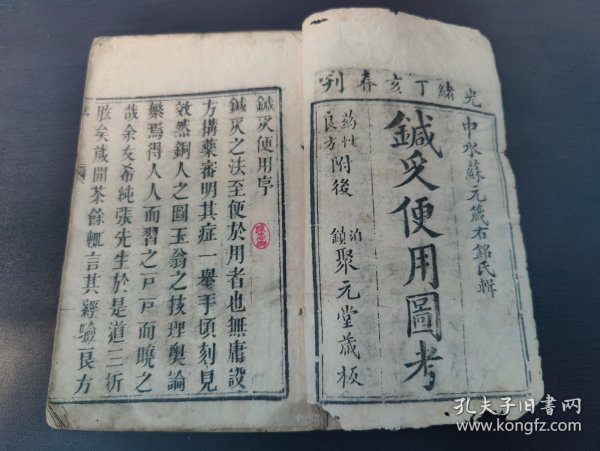 光緒丁亥春刊
中水蘇元箴右銘氏輯
鍼灸便用圖考
藥性良方附後
泊鎮聚元堂藏板
鍼灸便用序
鍼灸之法至便於用者也無庸設
方搆藥審明其症一舉手頃刻見
效然銅人之圖玉翁之技理奧論
繁焉得人人而習之戶戶而曉之
哉余友希純張先生於是道三折
肱矣歲閒茶餘輒言其經驗良方
孔夫子旧书网
www.kongfz.com